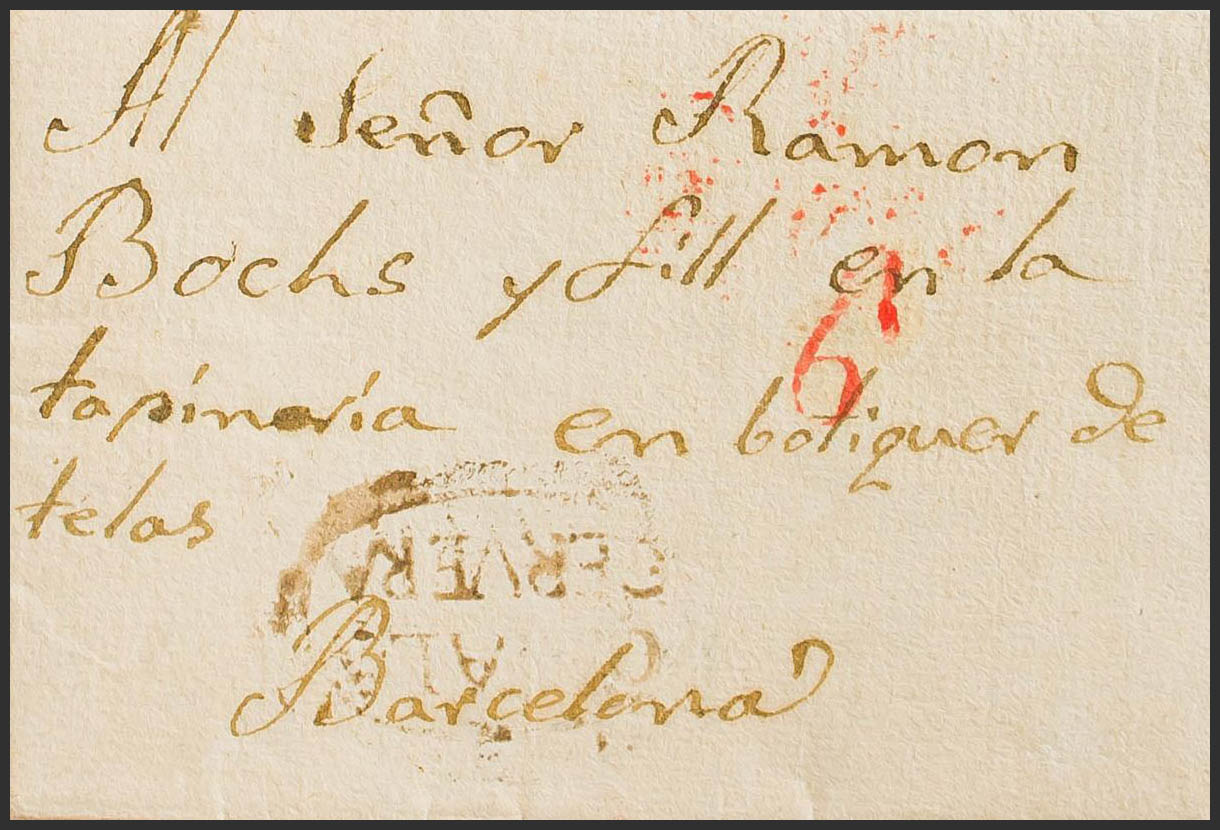 Al Señor Ramon
Bochs y fill en la
6
tapineria en botiguer de
telas
CERVERA
Barcelona